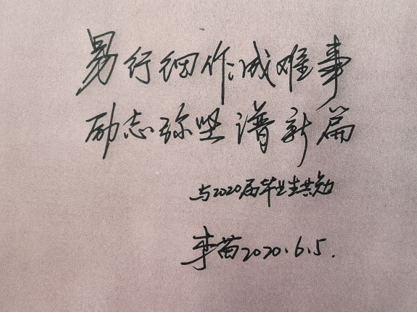 易行细作成难事
励志弥坚谱新篇
与2020届毕业生共勉
李苗2020.6.5.